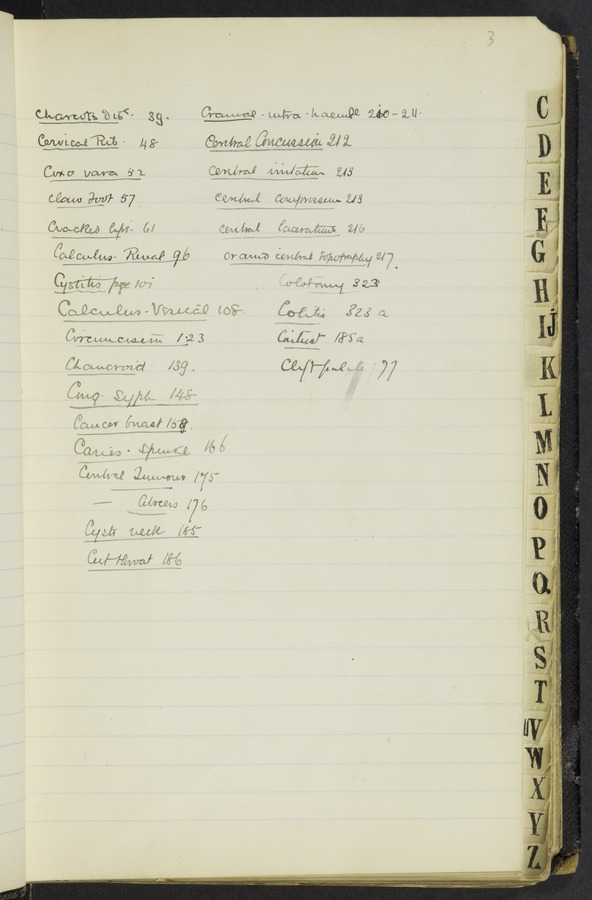 3
Charcots Disᵉ. 39.
Cervical Rib. 48
Coxa vara 52
Claw Foot 57
Cracked lips. 61
Calculus. Renal 96
Cystitis page 101
Calculus. Vesical 108.
Circumcision 123
Chancroid 139.
Cong. Syph. 148
Cancer breast 158.
Caries. Spinal 166
Cerebral Tumours 175
— Abscess 176
Cysts neck 185
Cut throat 186
Cranial. intra. haemge 210-211.
Cerebral Concussion 212
Cerebral irritation 213
Cerebral Compression 213
Cerebral lacerations 216
Cranio cerebral topography 217.
Colotomy 323
Colitis 323 a
185a
Cleft palate 177
C
D
E
F
G
H
IJ
K
L
M
N
O
P
Q
R
S
T
UV
W
X
Y
Z